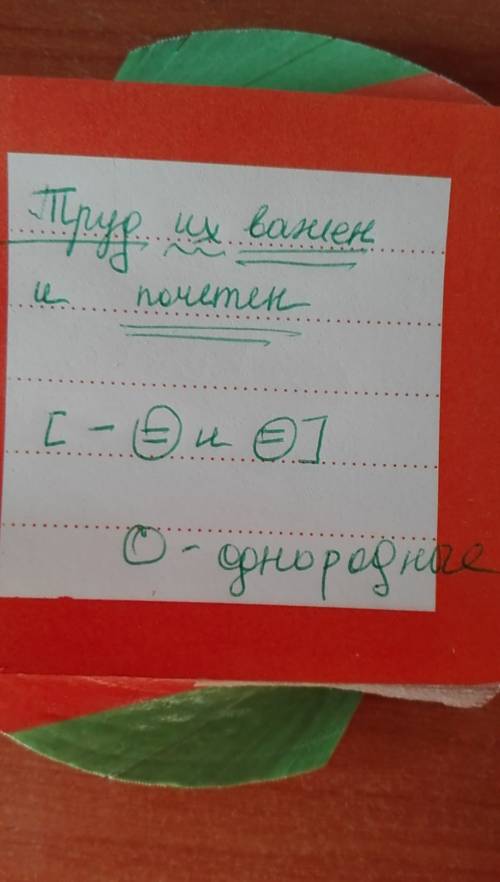 Труд их важен
и почетен
[ - (=) и (=) ]
О - однородные